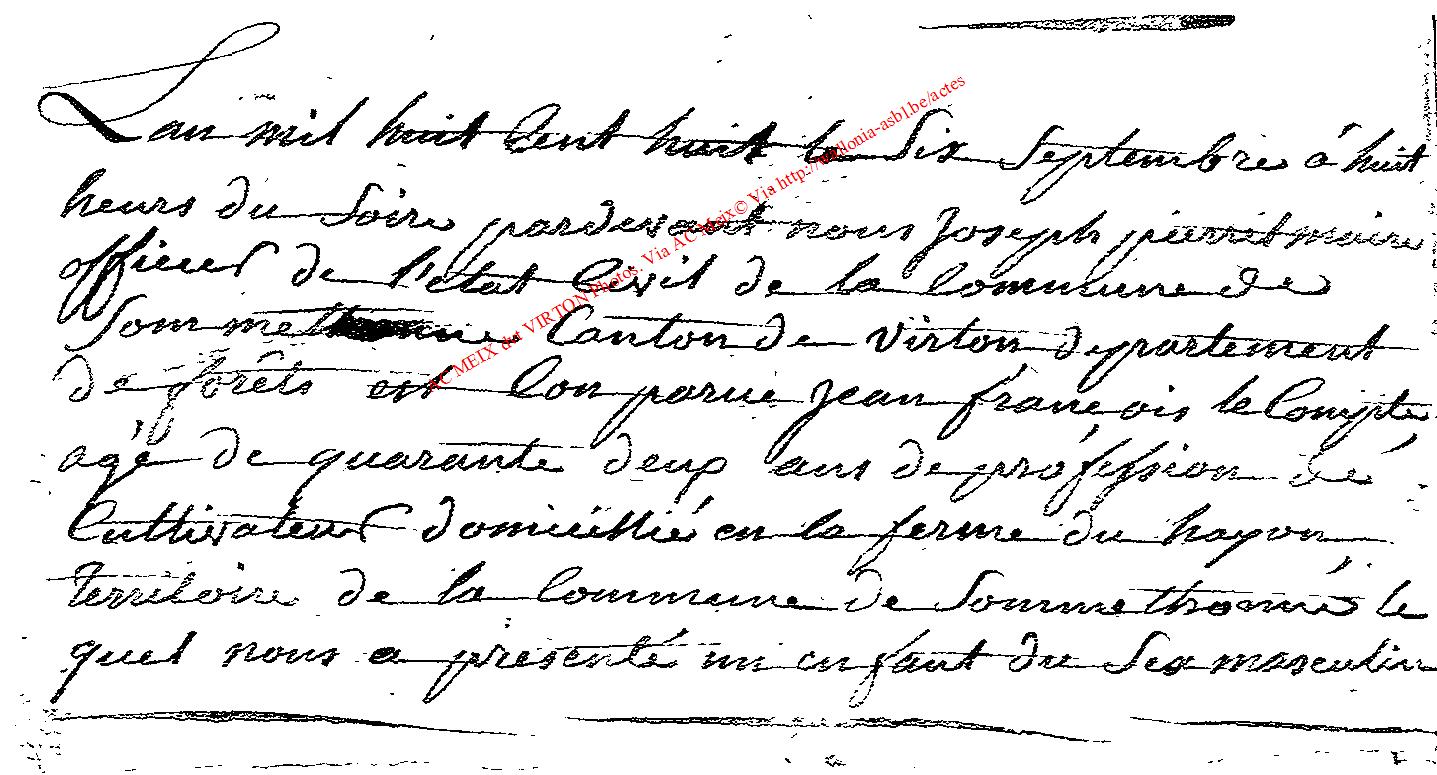 L'an mil huit Cent huit le Six Septembre à huit
heurs du Soire pardevant nous Joseph pierret maire
officier de l'état Civil de la Commune de
Sommethonne Canton de Virton département
de forêts est Con parue Jean françois le Compte
agé de quarante deux ans de proféssion de
Cultivateur domicillié en la ferme du hayon
territoire de la Commune de Sommethonne le
quel nous a presenté un enfant du Sex masculin
AC MEIX dvt VIRTON Photos. Via AC Meix© Via http://wallonia-asbl.be/actes